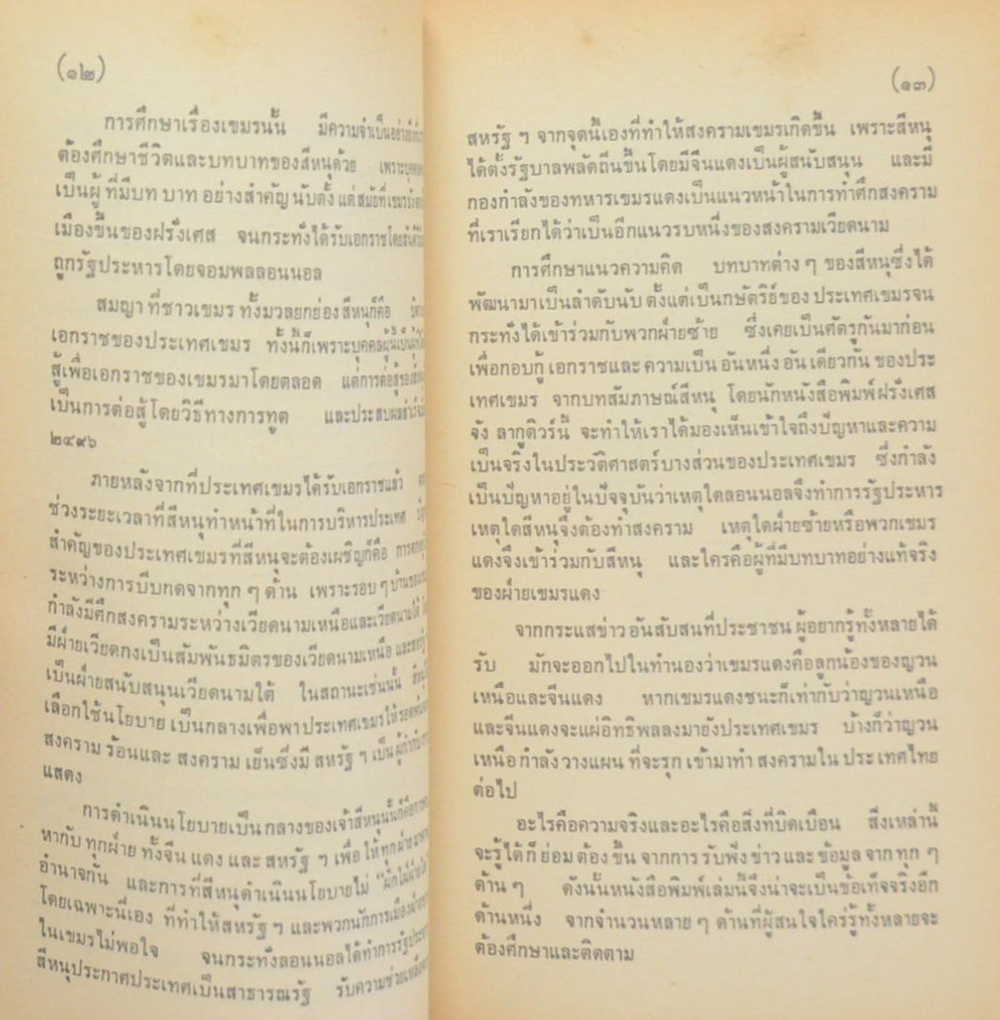 (๑๒)
การศึกษาเรื่องเขมรนั้น มีความจำเป็นอย่างยิ่งที่
ต้องศึกษาชีวิตและบทบาทของสีหนุด้วย เพราะบุคคล
เป็นผู้ ที่มีบท บาท อย่างสำคัญ นับตั้ง แต่ สมัยที่ เขมรยัง
เมืองขึ้นของฝรั่งเศส จนกระทั่งได้รับเอกราชโดย
ถูกรัฐประหารโดยจอมพลลอนนอล
สมญา ที่ ชาวเขมร ทั้งมวลยกย่อง สีหนุก็คือ
เอกราชของประเทศเขมร ทั้งนี้ก็เพราะบุคคลผู้นี้เป็น
สู้เพื่อเอกราชของเขมรมาโดยตลอด แต่การต่อสู้ของ
เป็นการต่อสู้ โดยวิธีทางการทูต และประสบผลสำเร็จ
๒๔๙๖
ภายหลังจากที่ประเทศเขมรได้รับเอกราชแล้ว
ช่วงระยะเวลาที่สีหนุทำหน้าที่ในการบริหารประเทศ
สำคัญของประเทศเขมรที่สีหนุจะต้องเผชิญก็คือ
ระหว่างการบีบกดจากทุก ๆ ด้าน เพราะรอบ ๆ บ้านของ
กำลังมีศึกสงครามระหว่างเวียดนามเหนือและเวียดนามใต้
มีฝ่ายเวียดกงเป็นสัมพันธมิตรของเวียดนามเหนือ และสหรัฐ
เป็นฝ่ายสนับสนุนเวียดนามใต้ ในสถานะเช่นนั้น สีหนุ
เลือกใช้นโยบาย เป็นกลางเพื่อพาประเทศเขมรให้ รอดพ้น
สงคราม ร้อนและ สงคราม เย็นซึ่งมี สหรัฐ ฯ เป็น ผู้กำกับการ
แสดง
การดำเนินนโยบายเป็นกลางของเจ้าสีหนุนั้นก็คือการ
หากับ ทุกฝ่าย ทั้งจีน แดง และ สหรัฐ ฯ เพื่อ ให้ ทุกฝ่าย
อำนาจกัน และการที่สีหนุดำเนินนโยบายไม่ "ฝักใฝ่ฝ่ายใด
โดยเฉพาะนี่เอง ที่ทำให้สหรัฐ ฯ และพวกนักการเมืองฝ่าย
ในเขมรไม่พอใจ จนกระทั่งลอนนอลได้ทำการรัฐประหาร
สีหนุประกาศประเทศเป็นสาธารณรัฐ รับความช่วยเหลือ
(๑๓)
สหรัฐ ฯ จากจุดนี้เองที่ทำให้สงครามเขมรเกิดขึ้น เพราะสีหนุ
ได้ตั้งรัฐบาลพลัดถิ่นขึ้นโดยมีจีนแดงเป็นผู้สนับสนุน และมี
กองกำลังของทหารเขมรแดงเป็นแนวหน้าในการทำศึกสงคราม
ที่เราเรียกได้ว่าเป็นอีกแนวรบหนึ่งของสงครามเวียดนาม
การศึกษาแนวความคิด บทบาทต่าง ๆ ของสีหนุซึ่งได้
พัฒนามาเป็นลำดับนับ ตั้งแต่เป็นกษัตริย์ของ ประเทศเขมรจน
กระทั่งได้เข้าร่วมกับพวกฝ่ายซ้าย ซึ่งเคยเป็นศัตรูกันมาก่อน
เพื่อกอบกู้ เอกราชและ ความเป็น อันหนึ่ง อัน เดียวกัน ของประ
เทศเขมร จากบทสัมภาษณ์สีหนุ โดยนักหนังสือพิมพ์ฝรั่งเศส
จัง ลากูติวร์นี้ จะทำให้เราได้มองเห็นเข้าใจถึงปัญหาและความ
เป็นจริงในประวัติศาสตร์บางส่วนของประเทศเขมร ซึ่งกำลัง
เป็นปัญหาอยู่ในปัจจุบันว่าเหตุใดลอนนอลจึงทำการรัฐประหาร
เหตุใดสีหนุจึงต้องทำสงคราม เหตุใดฝ่ายซ้ายหรือพวกเขมร
แดงจึงเข้าร่วมกับสีหนุ และใครคือผู้ที่มีบทบาทอย่างแท้จริง
ของฝ่ายเขมรแดง
จากกระแสข่าว อันสับสนที่ประชาชน ผู้อยากรู้ทั้งหลายได้
รับ มักจะออกไปในทำนองว่าเขมรแดงคือลูกน้องของญวน
เหนือและจีนแดง หากเขมรแดงชนะก็เท่ากับว่าญวนเหนือ
และจีนแดงจะแผ่อิทธิพลลงมายังประเทศเขมร บ้างก็ว่าญวน
เหนือ กำลัง วางแผน ที่จะรุก เข้ามาทำ สงครามใน ประ เทศไทย
ต่อไป
อะไรคือความจริงและอะไรคือสิ่งที่บิดเบือน สิ่งเหล่านี้
จะรู้ ได้ ก็ ย่อม ต้อง ขึ้น จากการ รับฟัง ข่าว และ ข้อมูล จาก ทุก ๆ
ด้าน ๆ ดังนั้นหนังสือพิมพ์เล่มนี้จึงน่าจะเป็นข้อเท็จจริงอีก
ด้านหนึ่ง จากจำนวนหลาย ๆ ด้านที่ผู้สนใจใคร่รู้ทั้งหลายจะ
ต้องศึกษาและติดตาม